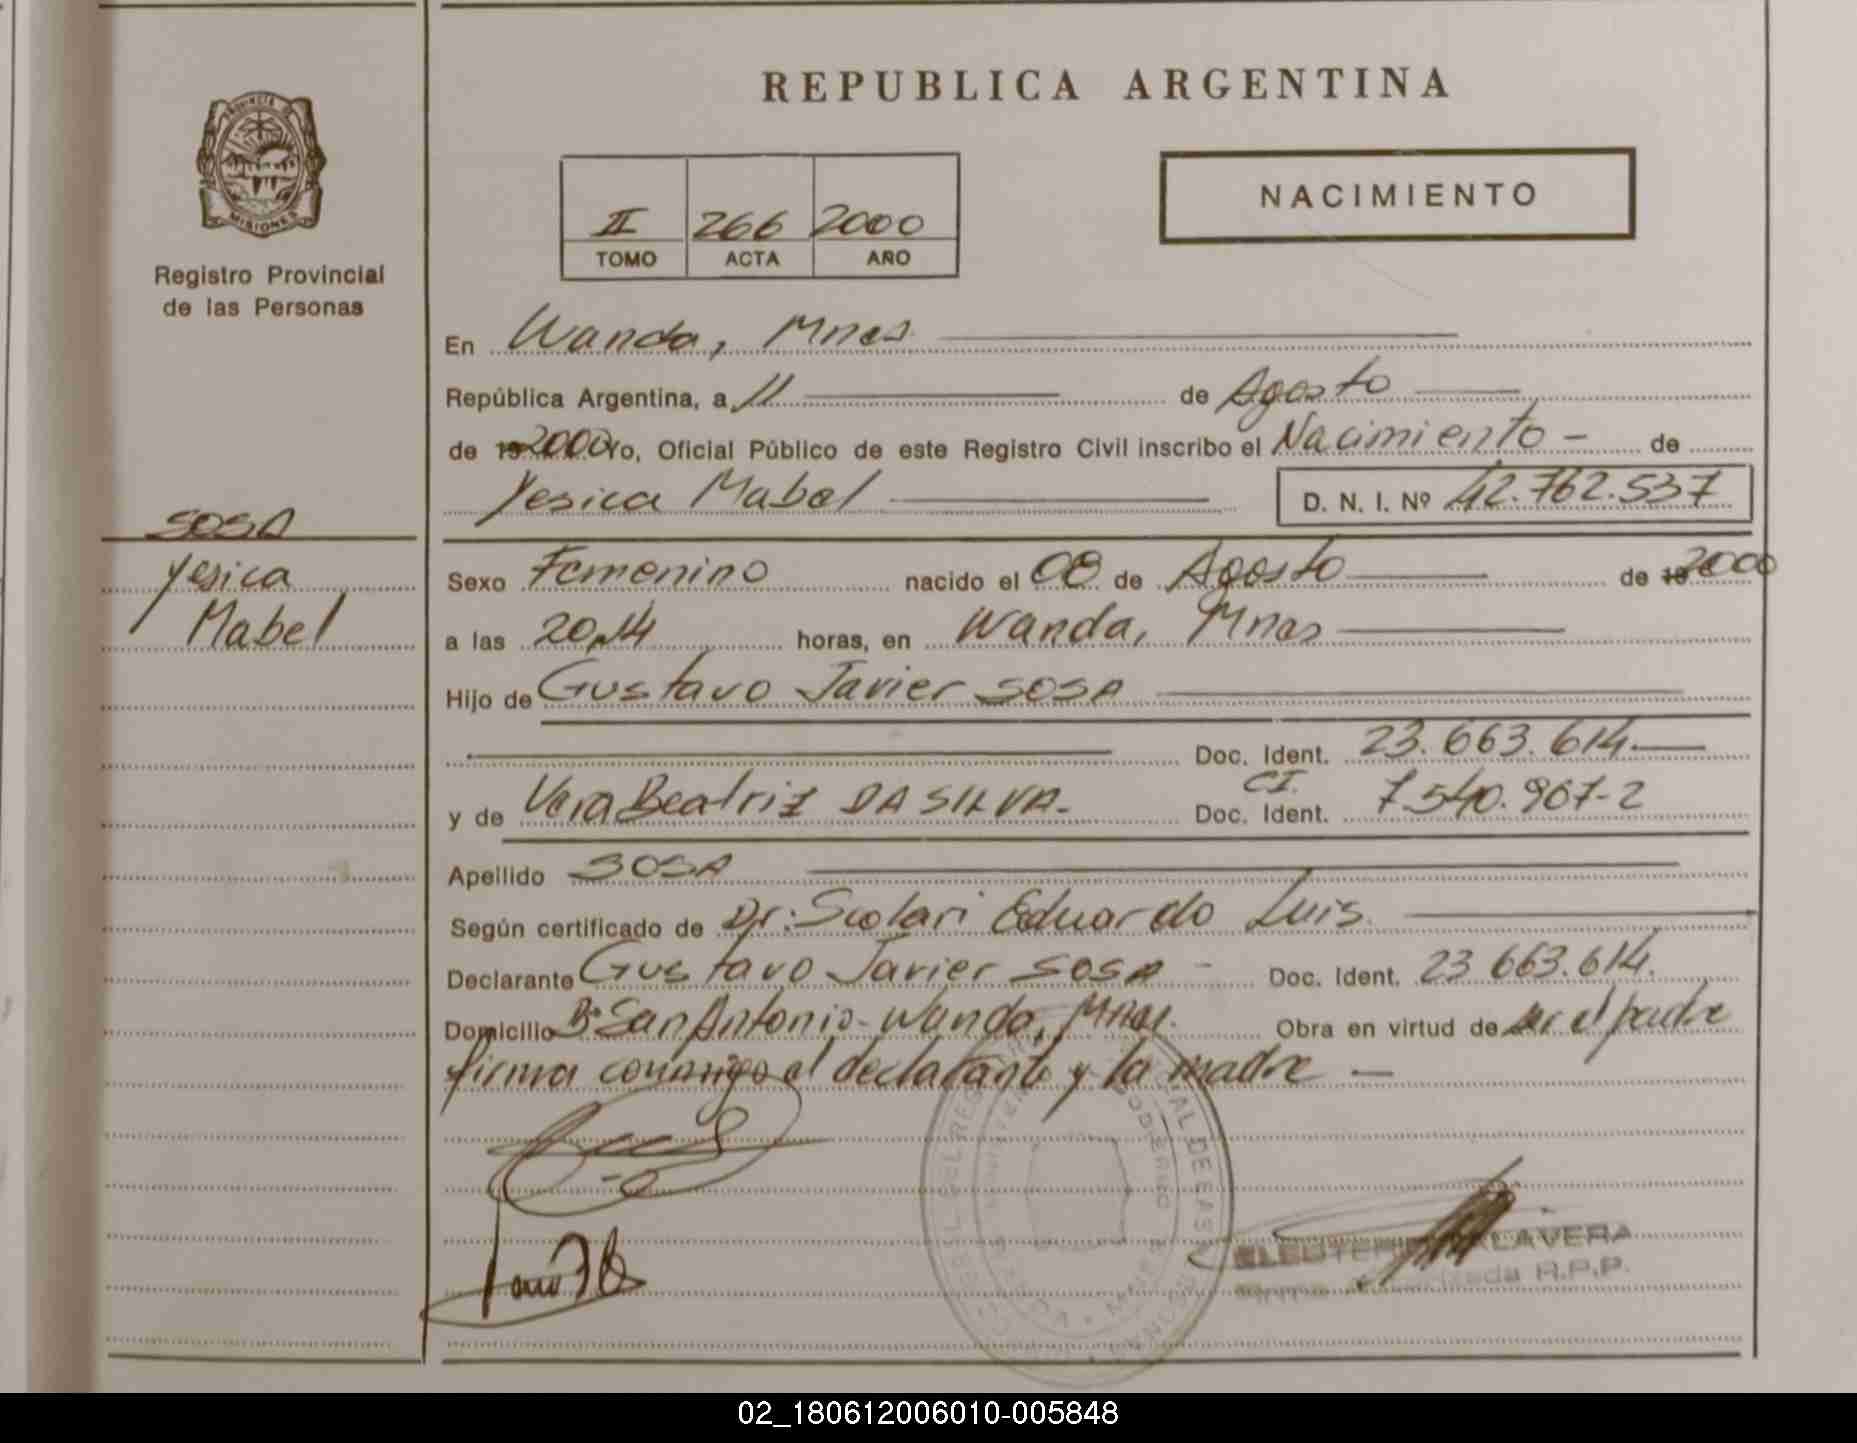 REPUBLICA ARGENTINA
NACIMIENTO
II 266 2000
TOMO ACTA AÑO
MISIONES
Registro Provincial
de las Personas
En Wanda, Mnes
República Argentina, a 11 de Agosto
de 19 2000 Yo, Oficial Público de este Registro Civil inscribo el Nacimiento - de
Yesica Mabel D. N. I. Nº 42.762.537
SOSA
Yesica
Mabel
Sexo Femenino nacido el 08 de Agosto de 19 2000
a las 20,14 horas, en Wanda, Mnes
Hijo de Gustavo Javier SOSA
Doc. Ident. 23.663.614
CI.
y de Vera Beatriz DA SILVA- Doc. Ident. 7.540.907-2
Apellido SOSA
Según certificado de Dr: Scolari Eduardo Luis.
Declarante Gustavo Javier SOSA - Doc. Ident. 23.663.614.
Domicilio Bº San Antonio- Wanda, Mnes. Obra en virtud de ser el padre
firma conmigo el declarante y la madre —
ELEUTERIO TALAVERA
Firma Autorizada R.P.P.
02_180612006010-005848